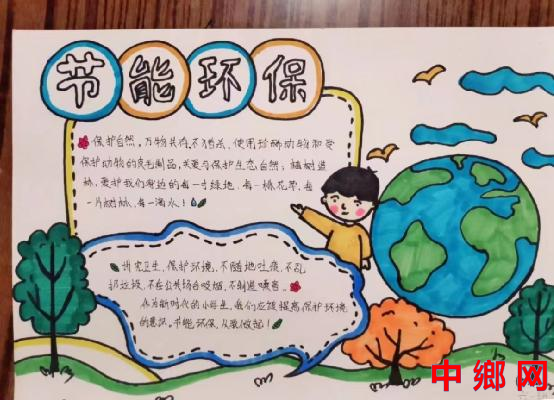 节能环保
保护自然,万物共存,不猎杀、使用珍稀动物和受
保护动物的皮毛制品,关爱与保护生态自然,植树造
林,爱护我们身边的每一寸绿地、每一棵花草、每
一片树林、每一滴水!
讲究卫生、保护环境,不随地吐痰,不乱
扔垃圾,不在公共场合吸烟,不制造噪音。
作为新时代的小学生,我们应该提高保护环境
的意识。节能环保,从我做起!
中鄉网